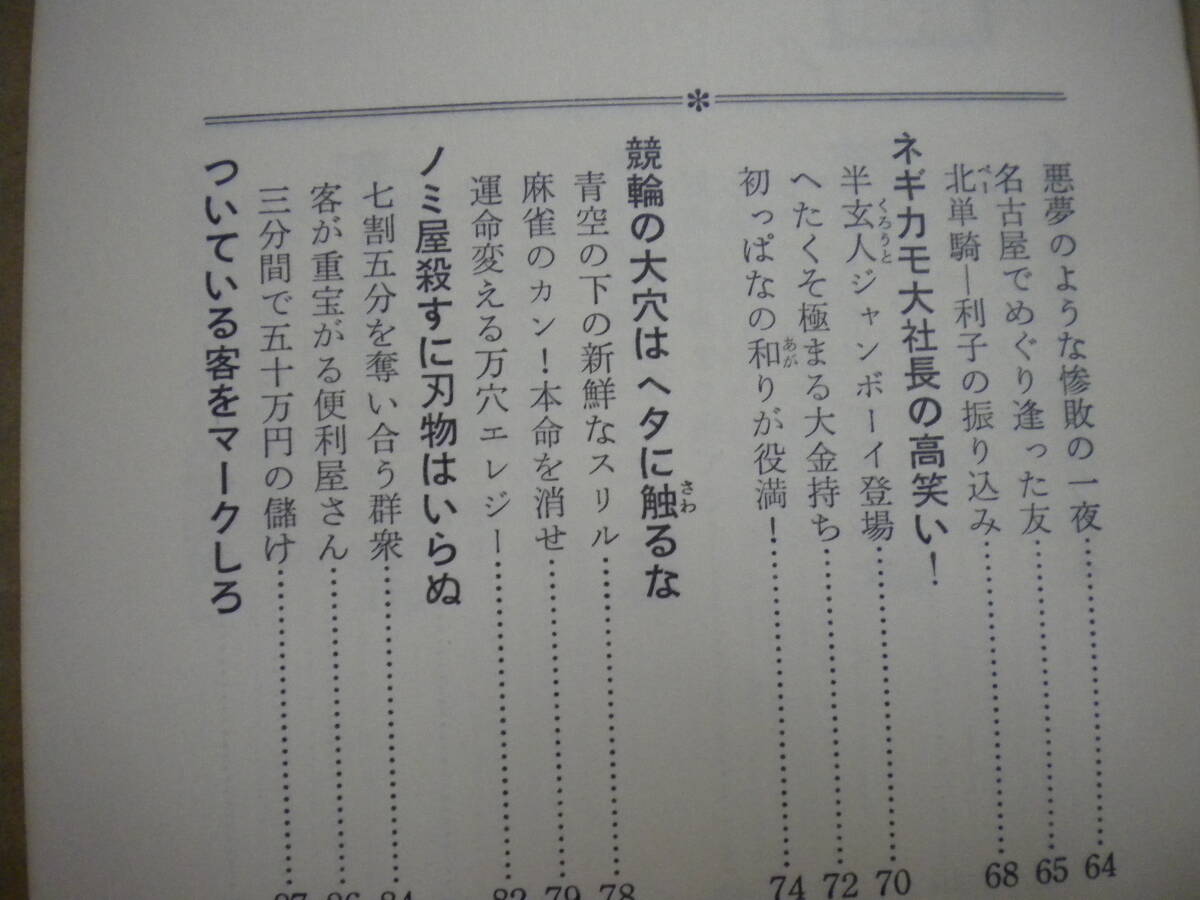 悪夢のような惨敗の一夜……64
名古屋でめぐり逢った友……65
北単騎―利子の振り込み……68
ペー
ネギカモ大社長の高笑い!
半玄人ジャンボーイ登場……70
くろうと
へたくそ極まる大金持ち……72
初っぱなの和りが役満!……74
あが
競輪の大穴はヘタに触るな
さわ
青空の下の新鮮なスリル……78
麻雀のカン!本命を消せ……79
運命変える万穴エレジー……82
ノミ屋殺すに刃物はいらぬ
七割五分を奪い合う群衆……84
客が重宝がる便利屋さん……86
三分間で五十万円の儲け……87
ついている客をマークしろ